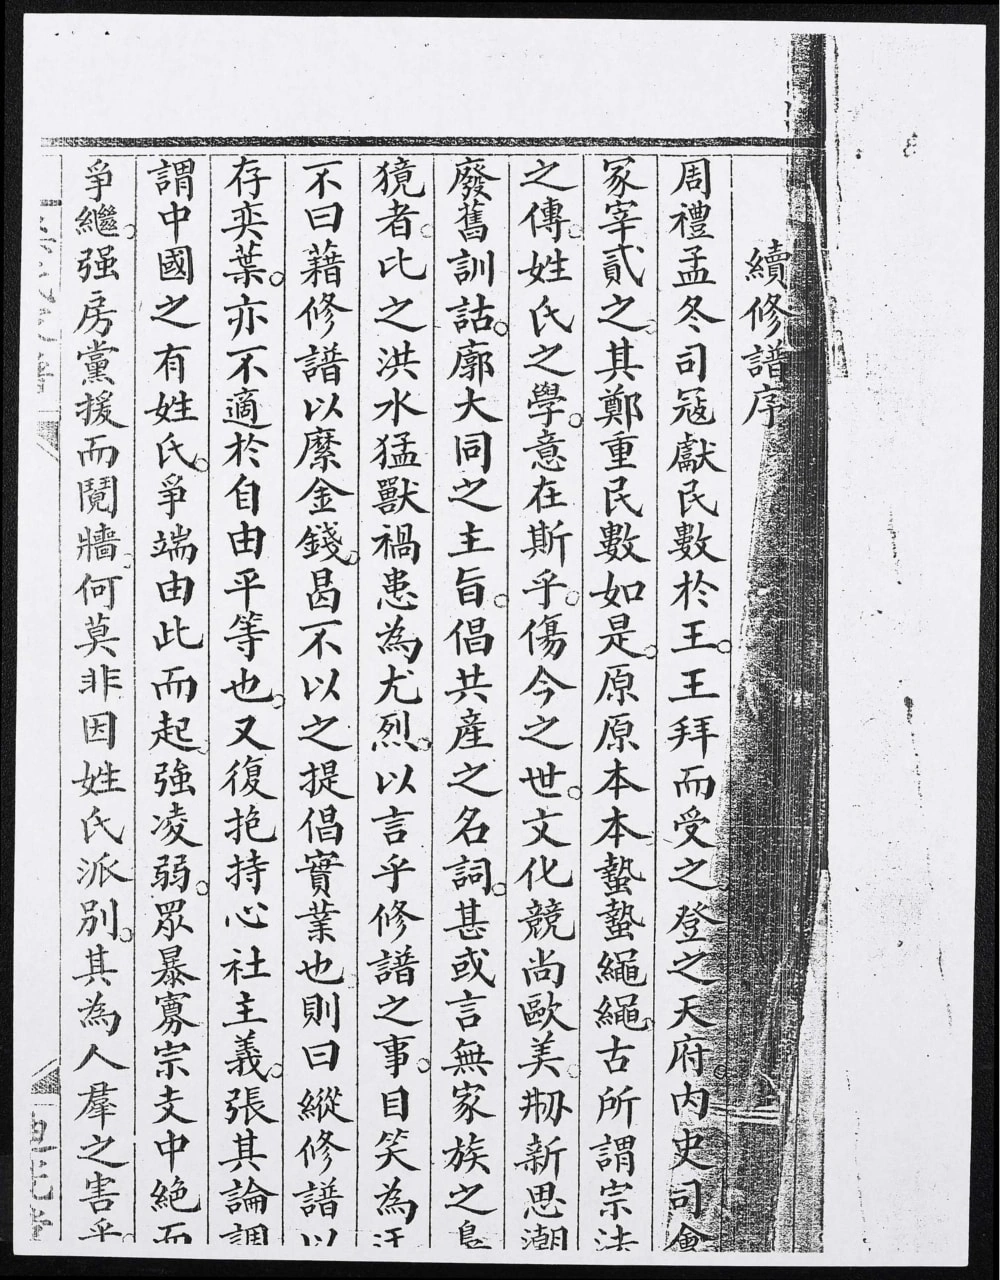 續修譜序
周禮孟冬司冦獻民數於王。王拜而受之。登之天府。內史司會
冢宰貳之。其鄭重民數如是。原原本本。蟄蟄繩繩。古所謂宗法
之傳。姓氏之學。意在斯乎。傷今之世。文化競尚歐美。刱新思潮
廢舊訓詁。廓大同之主旨。倡共產之名詞。甚或言無家族之
獍者。比之洪水猛獸。禍患為尤烈。以言乎修譜之事。目笑為迂
不曰藉修譜以縻金錢。曷不以之提倡實業也。則曰縱修譜以
存奕葉。亦不適於自由平等也。又復抱持心社主義。張其論調
謂中國之有姓氏。爭端由此而起。強凌弱。眾暴寡。宗支中絕而
爭繼。强房黨援而鬩牆。何莫非因姓氏派別。其為人羣之害乎。